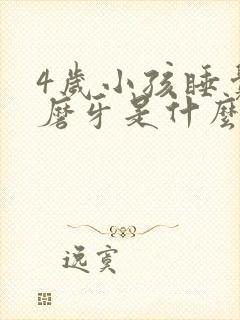 4歲小孩睡覺
磨牙是什麼
逸寞